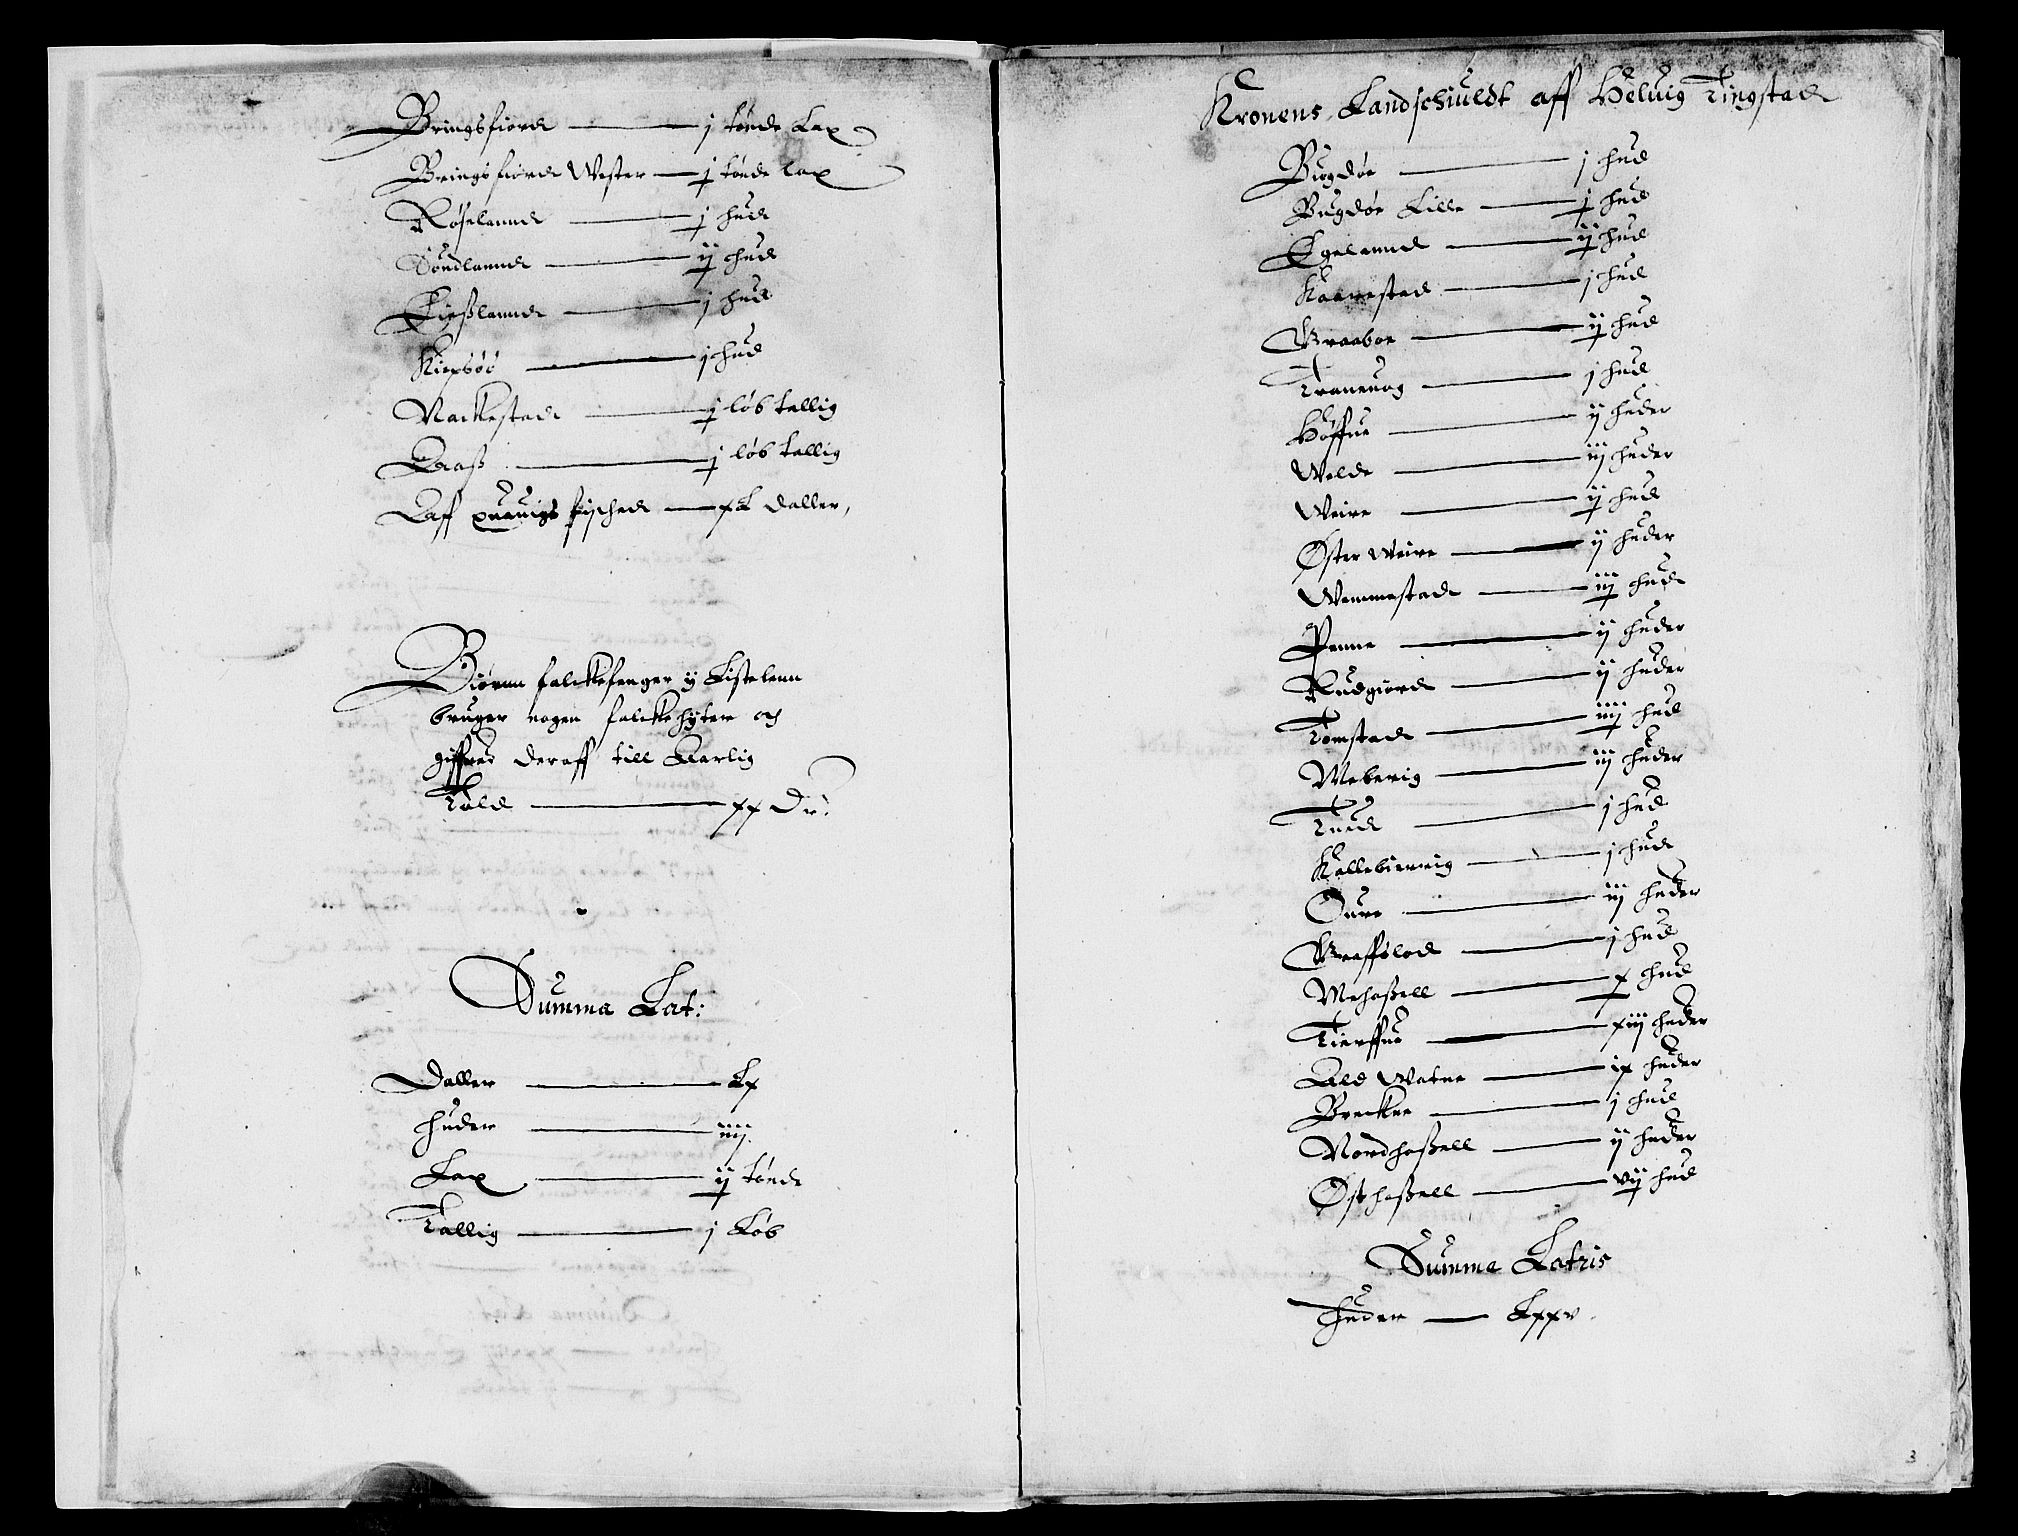 Bringsfiord — j tønde Lax
Bringsfiord Wester — j tønde lax
Røyselannd — j hud
Sundlannd — ij hud
Eießlannd — j hud
Kiepsøö — j hud
Narkestad — j løb tallig
Aaß — j løb tallig
Aff quauigs fischer — xL daller,
Biørnn falckefenger y Listelenn
bruger nogen falckehyter och
giffuer deraff till Aarlig
Told — xx Dr:
Summa Lat:
Daller — Lx
Huder — iiij
Lax — ij tønde
Tallig — j Løb
Kronens Landschiuldt aff Heluig Tingstad
Bugdøe — j hud
Bugdøe Lille — j hud
Egelannd — ij hud
Kaarestad — j hud
Braaboe — ij hud
Traneuog — j hud
Høffue — ij huder
Welde — iij huder
Weire — ij hud
Øster Weire — ij huder
Wemmestad — iij hud
Penne — ij huder
Rudgiord — ij huder
Tomstad — iiij hud
Meberig — iij huder
Tued — j hud
Kallebierrig — j hud
Øure — iij huder
Braffslod — j hud
Mehaßell — x hud
Tierffue — xiij huder
Ald Watne — ix huder
Breckne — j hud
Nordhaßell — ij huder
Østhaßell — vij hud
Summa Latris
Huder — Lxxv
3